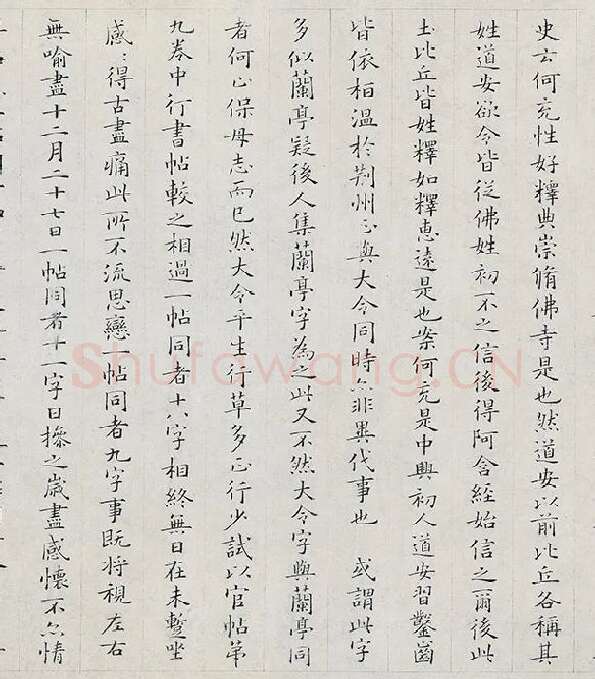 史云何充性好釋典崇脩佛寺是也然道安以前比丘各稱其
姓道安欲令皆從佛姓初不之信後得阿含經始信之爾後此
土比丘皆姓釋如釋惠遠是也案何充是中興初人道安習鑿齒
皆依桓溫於荆州正與大令同時亦非異代事也 或謂此字
多似蘭亭疑後人集蘭亭字為之此又不然大令字與蘭亭同
者何止保母志而已然大令平生行草多正行少試以官帖第
九卷中行書帖較之相過一帖同者十八字相終無日在未蹔坐
感〻得古盡痛此所不流思戀一帖同者九字事既將視左右
無喻盡十二月二十七日一帖同者十一字日操之歲盡感懷不亦情
Shufawang.CN